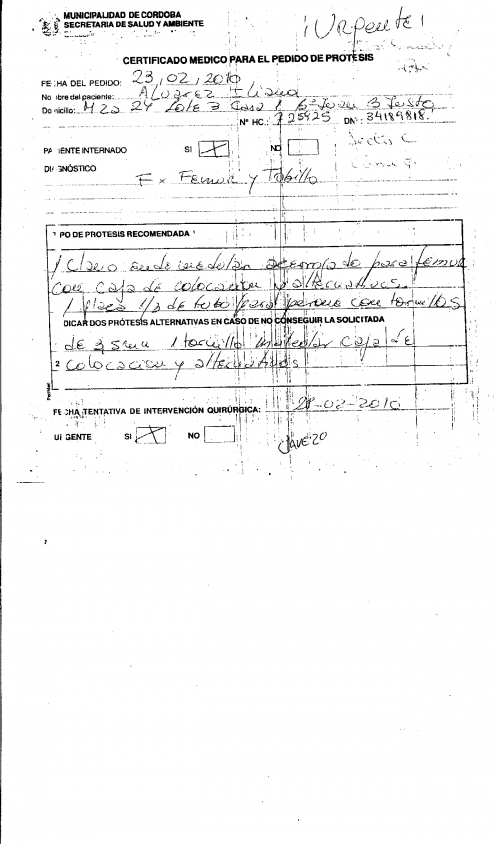 MUNICIPALIDAD DE CORDOBA
SECRETARIA DE SALUD Y AMBIENTE
¡Urgente!
CERTIFICADO MEDICO PARA EL PEDIDO DE PROTESIS
FECHA DEL PEDIDO: 23,02,2010
No bre del paciente: Alvarez Eliana
Do nicilio: Mza 24 Lote 3 Casa 1 Bº Juan B Justo
Nº HC.: 725925 DNI: 34189818.
PA IENTE INTERNADO SI X NO
DIAGNÓSTICO Fx Femur y Tobillo
TIPO DE PROTESIS RECOMENDADA
1 Clavo endomedular acerrojado para femur
con caja de colocacion y alternativas.
1 placa 1/3 de tubo para perone con tornillos
DICAR DOS PRÓTESIS ALTERNATIVAS EN CASO DE NO CONSEGUIR LA SOLICITADA
de 3,5mm 1 tornillo maleolar caja de
2 colocacion y alternativas
FECHA TENTATIVA DE INTERVENCIÓN QUIRÚRGICA: 28-02-2010
URGENTE SI X NO